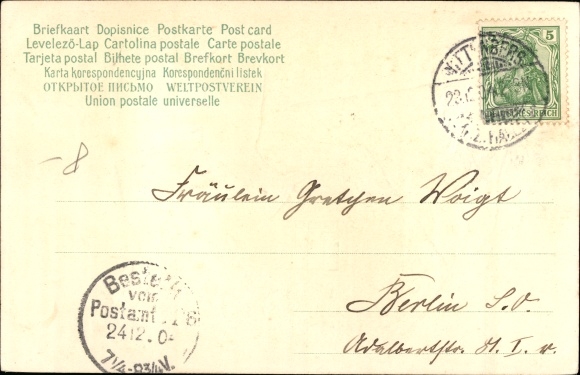 Briefkaart Dopisnice Postkarte Post card
Levelező-Lap Cartolina postale Carte postale
Tarjeta postal Bilhete postal Brefkort Brevkort
Karta korespondencyjna Korespondenční listek
ОТКРЫТОЕ ПИСЬМО WELTPOSTVEREIN
Union postale universelle
5
WITTENBERG
23.12.
DEUTSCHES REICH
-8
Fräulein Gretchen Voigt
Bestellt
vom
Postamt
24.12.0
7¼-8¾V.
Berlin S.O.
Adalbertstr. 81. I. r.